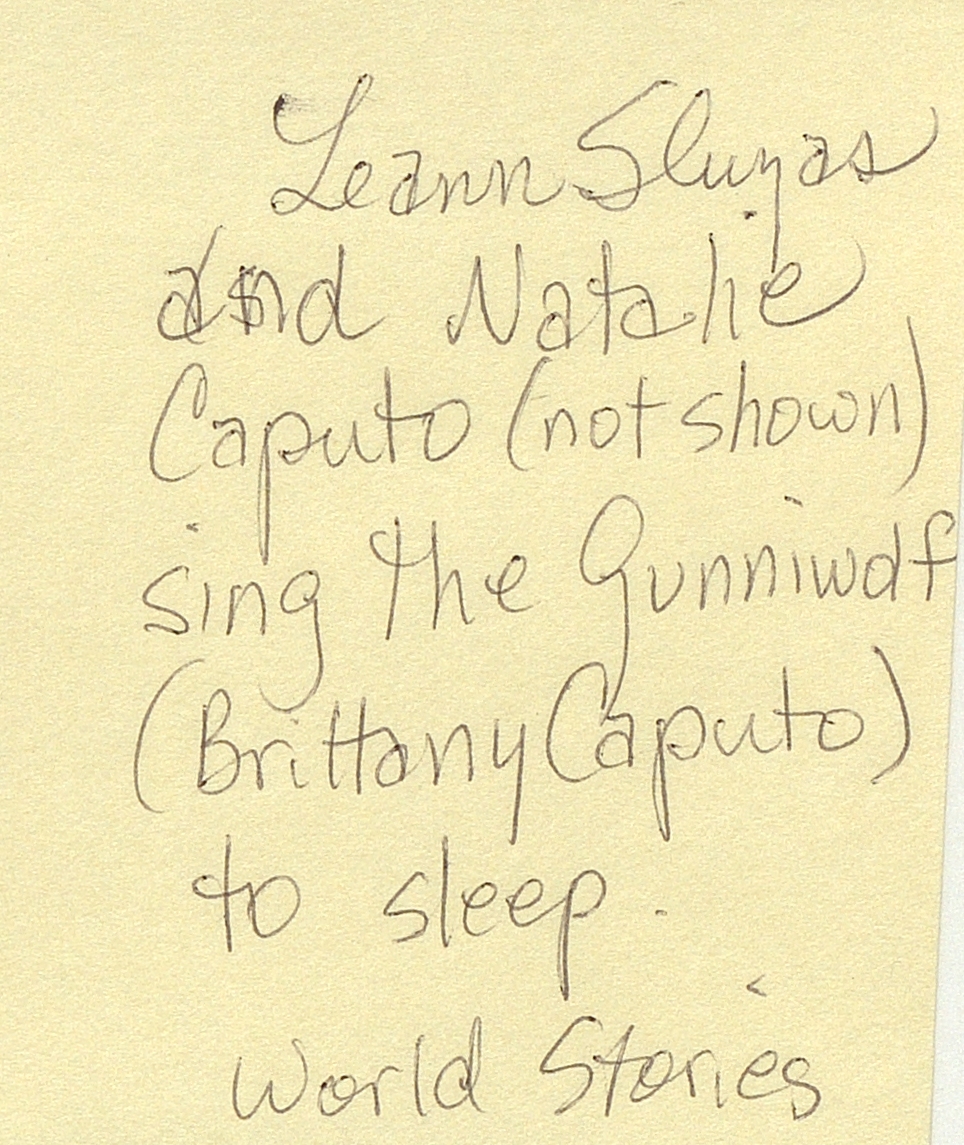 Leann Sluzas
and Natalie
Caputo (not shown)
sing the Gunniwolf
(Brittany Caputo)
to sleep.
World Stories